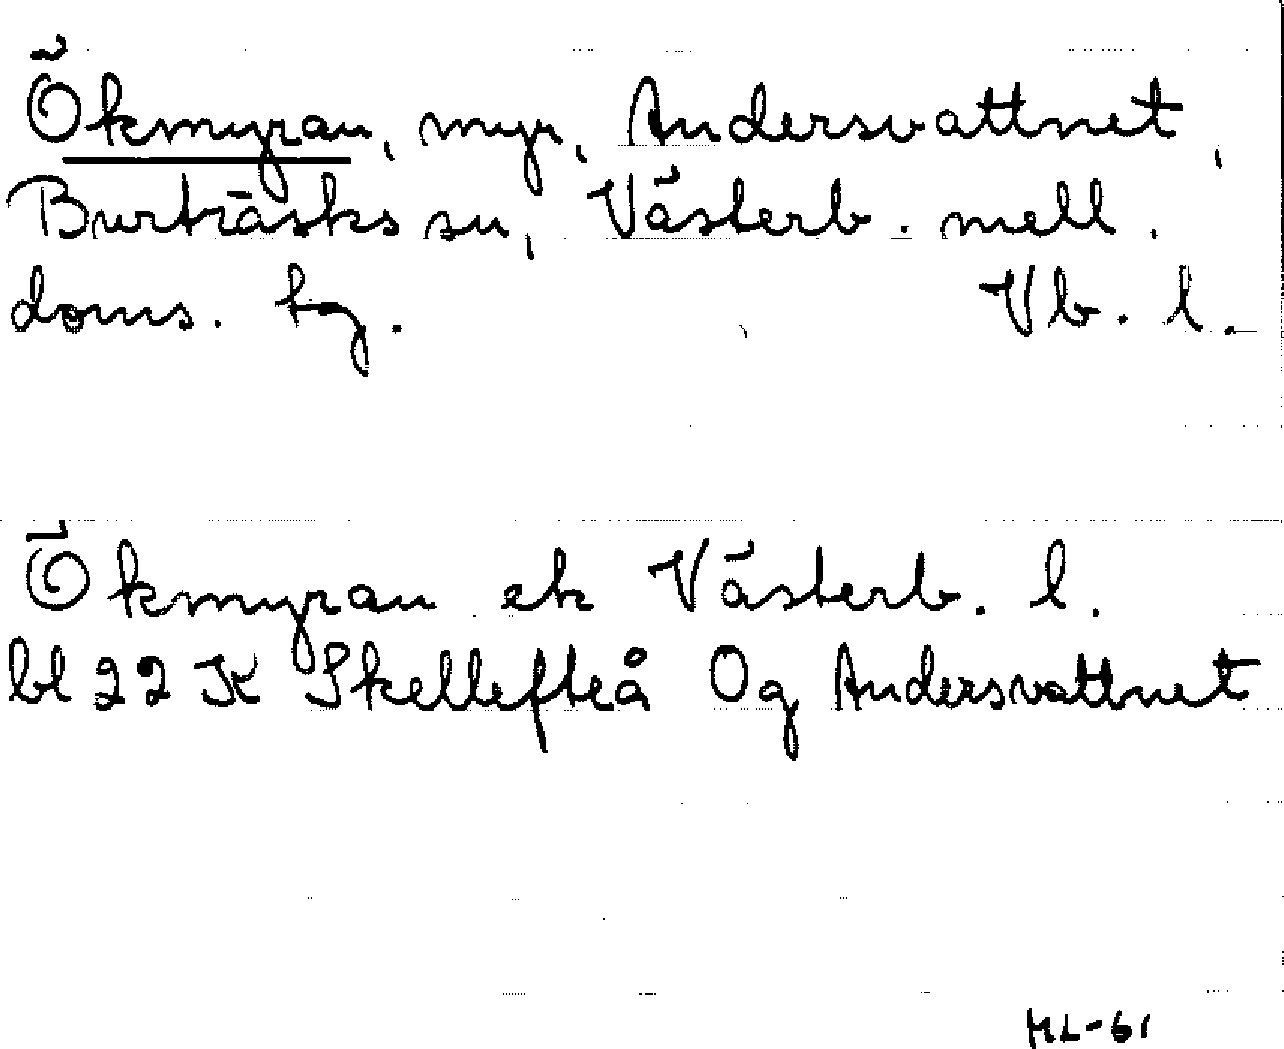 Ökmyran, myr, Andersvattnet,
Burträsks sn, Västerb. mell.
doms. tg. Vb. l.
Ökmyran ek Västerb. l.
bl 22 K Skellefteå Og Andersvattnet
ML-61